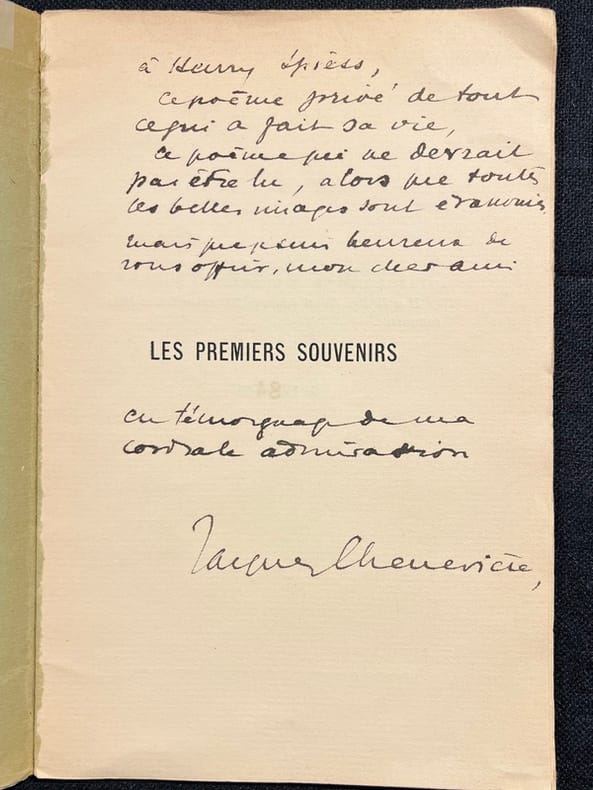 à Harry Spiess,
ce poème privé de tout
ce qui a fait sa vie,
ce poème qui ne devrait
pas être lu, alors que toutes
les belles images sont évanouies
mais que je suis heureux de
vous offrir, mon cher ami
LES PREMIERS SOUVENIRS
en témoignage de ma
cordiale admiration
Jacques Chenevière,